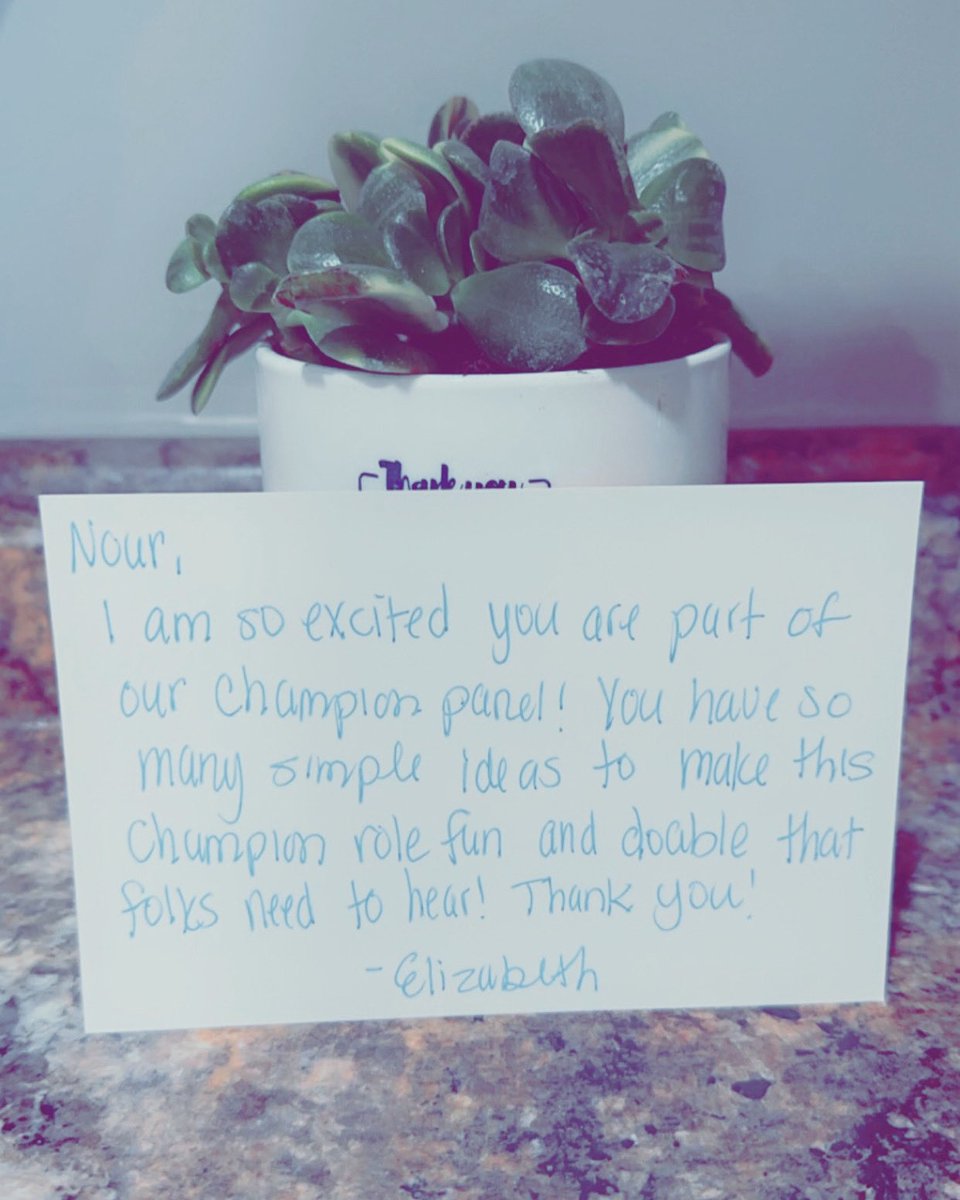 Thank you
Nour,
I am so excited you are part of
our Champion panel! You have so
many simple ideas to make this
Champion role fun and doable that
folks need to hear! Thank you!
- Elizabeth